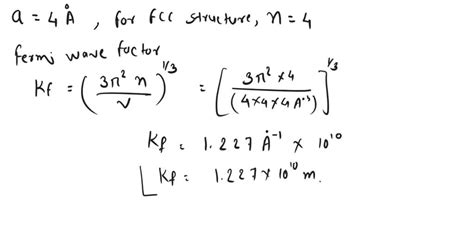 a = 4 Å , for FCC structure, n = 4
fermi wave factor
Kf = (3π² n / V)^1/3 = [3π² × 4 / (4×4×4 A°³)]^1/3
Kf = 1.227 Å⁻¹ × 10¹⁰
Kf = 1.227 × 10¹⁰ m.